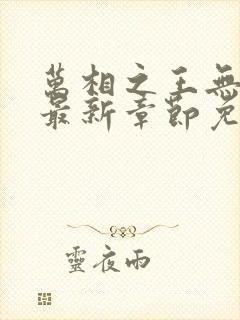 萬相之王無
最新章節免
靈夜雨